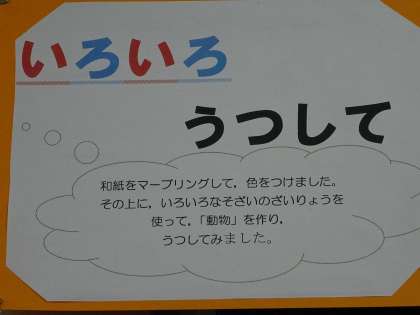 いろいろ
うつして
和紙をマーブリングして，色をつけました。
その上に，いろいろなそざいのざいりょうを
使って，「動物」を作り，
うつしてみました。